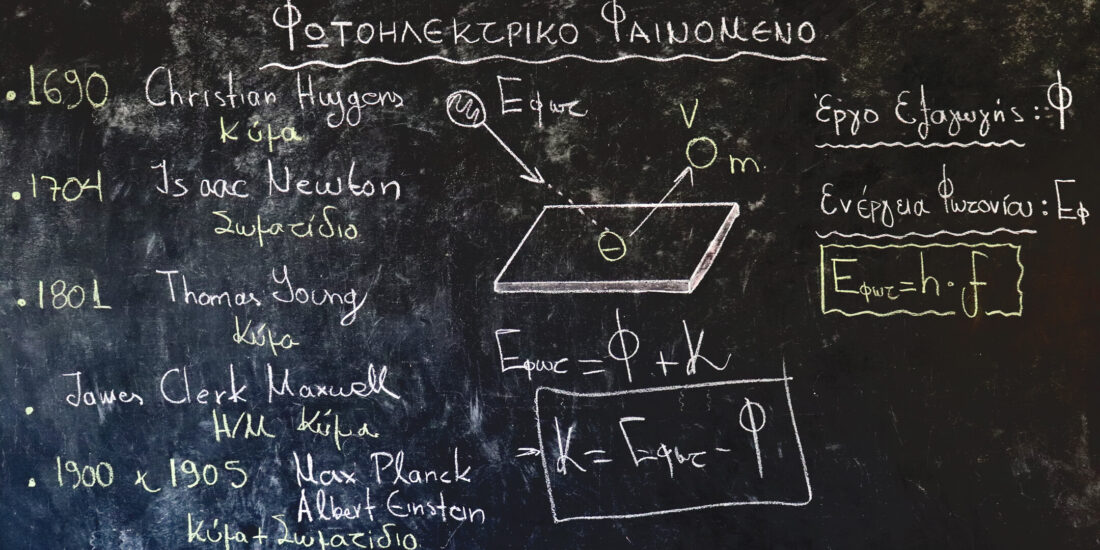 ΦΩΤΟΗΛΕΚΤΡΙΚΟ ΦΑΙΝΟΜΕΝΟ
• 1690 Christian Huygens
Κύμα
• 1704 Isaac Newton
Σωματίδιο
• 1801 Thomas Young
Κύμα
• James Clerk Maxwell
Η/Μ Κύμα
• 1900 κ 1905 Max Planck
Albert Einstein
Κύμα + Σωματίδιο
Eφωτ
V
m
−
Eφωτ = Φ + K
⇒ K = Eφωτ - Φ
Έργο Εξαγωγής : Φ
Ενέργεια Φωτονίου : Eφ
Eφωτ = h · f